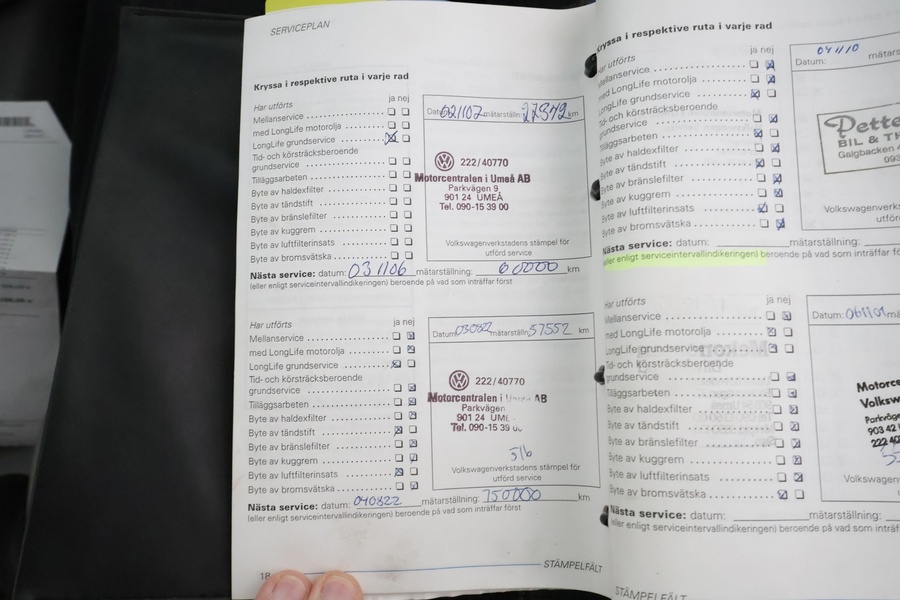 SERVICEPLAN
Kryssa i respektive ruta i varje rad
Har utförts ja nej
Mellanservice
med LongLife motorolja
LongLife grundservice
Tid- och körsträcksberoende
grundservice
Tilläggsarbeten
Byte av haldexfilter
Byte av tändstift
Byte av bränslefilter
Byte av kuggrem
Byte av luftfilterinsats
Byte av bromsvätska
021107 mätarställn: 27342 km
222/40770
Motorcentralen i Umeå AB
Parkvägen 9
901 24 UMEÅ
Tel. 090-15 39 00
Volkswagenverkstadens stämpel för
utförd service
Nästa service: datum: 031106 mätarställning: 60000 km
(eller enligt serviceintervallindikeringen) beroende på vad som inträffar först
Har utförts ja nej
Mellanservice
med LongLife motorolja
LongLife grundservice
Tid- och körsträcksberoende
grundservice
Tilläggsarbeten
Byte av haldexfilter
Byte av tändstift
Byte av bränslefilter
Byte av kuggrem
Byte av luftfilterinsats
Byte av bromsvätska
Datum: 030822 mätarställn: 57552 km
222/40770
Motorcentralen i AB
Parkvägen
901 24 UM
Tel. 090-15 39
Volkswagenverkstadens stämpel för
utförd service
Nästa service: datum: 040822 mätarställning: 750000 km
(eller enligt serviceintervallindikeringen) beroende på vad som inträffar först
18 STÄMPELFÄLT
Kryssa i respektive ruta i varje rad
Har utförts ja nej
Mellanservice
med LongLife motorolja
LongLife grundservice
Tid- och körsträcksberoende
grundservice
Tilläggsarbeten
Byte av haldexfilter
Byte av tändstift
Byte av bränslefilter
Byte av kuggrem
Byte av luftfilterinsats
Byte av bromsvätska
Datum: 041110 mätars
Pette
BIL & TH
Galgbacken
090
Volkswagenverks
utför
Nästa service: datum: mätarställning:
(eller enligt serviceintervallindikeringen) beroende på vad som inträffar fö
Har utförts ja nej
Mellanservice
med LongLife motorolja
LongLife grundservice
Tid- och körsträcksberoende
grundservice
Tilläggsarbeten
Byte av haldexfilter
Byte av tändstift
Byte av bränslefilter
Byte av kuggrem
Byte av luftfilterinsats
Byte av bromsvätska
Datum: 061101 mä
Motorce
Volksw
Parkväge
903 42
222 40
Volkswa
Nästa service: datum: mätarställning:
(eller enligt serviceintervallindikeringen) beroende på vad som inträffar
STÄMPELFÄLT